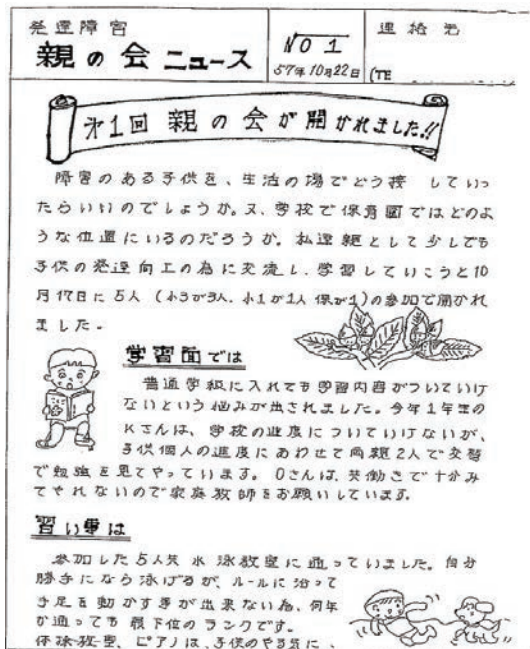 発達障害
親の会ニュース
NO 1
57年10月22日
連絡先
(TE
第1回 親の会が開かれました!!
障害のある子供を、生活の場でどう接 していっ
たらいいのでしょうか。又、学校で保育園ではどのよ
うな位置にいるのだろうか。私達親として少しでも
子供の発達向上の為に交流し、学習していこうと10
月17日に5人(小3が3人、小1が1人 保が1)の参加で開かれ
ました。
学習面では
普通学級に入れても学習内容がついていけ
ないという悩みが出されました。今年1年生の
Kさんは、学校の進度についていけないが、
子供個人の進度にあわせて両親2人で交替
で勉強を見てやっています。Oさんは、共働きで十分み
てやれないので家庭教師をお願いしています。
習い事は
参加した5人共 水泳教室に通っていました。自分
勝手になら泳げるが、ルールに沿って
手足を動かす事が出来ない為、何年
か通っても最下位のランクです。
体操教室、ピアノは、子供のやる気に、